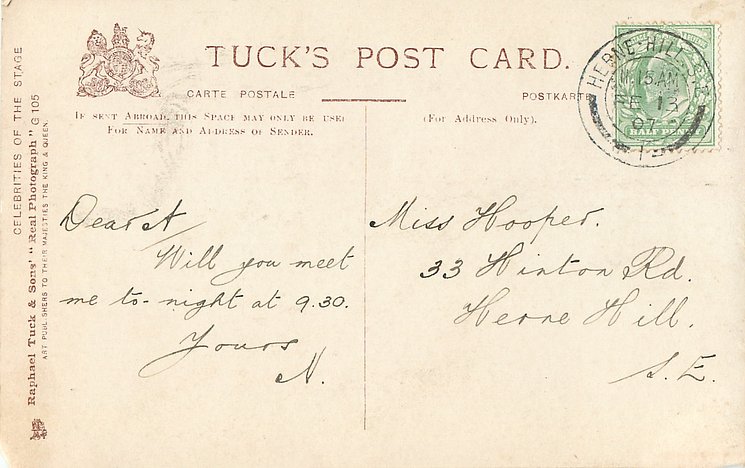 TUCK'S POST CARD.
CARTE POSTALE
POSTKARTE
IF SENT ABROAD, THIS SPACE MAY ONLY BE USED
FOR NAME AND ADDRESS OF SENDER.
(For Address Only).
HERNE-HILL S.E.
11.15 AM
FE 13
07
HALF PENNY
CELEBRITIES OF THE STAGE
Raphael Tuck & Sons' "Real Photograph" G 105
ART PUBLISHERS TO THEIR MAJESTIES THE KING & QUEEN.
Dear A
Will you meet
me to-night at 9.30.
Yours
N.
Miss Hooper.
33 Hinton Rd.
Herne Hill.
S.E.